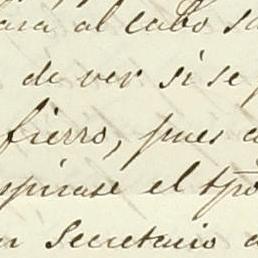 para al cabo sa
de ver si se
fierro, pues a
spirase el tpo
Secretario a